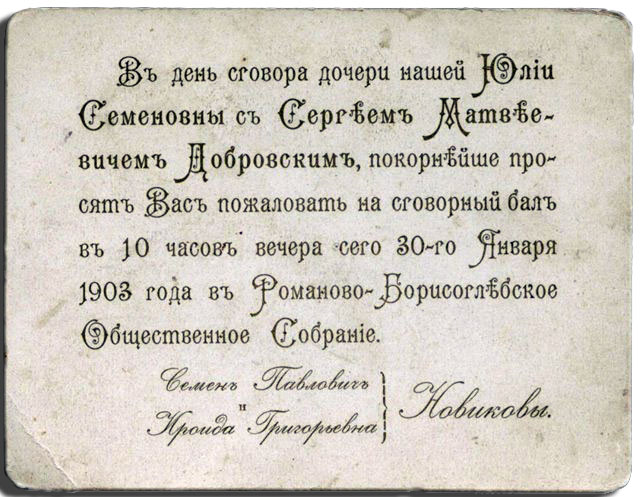 Въ день сговора дочери нашей Юліи
Семеновны съ Сергѣемъ Матвѣе-
вичемъ Добровскимъ, покорнѣйше про-
сятъ Васъ пожаловать на сговорный балъ
въ 10 часовъ вечера сего 30-го Января
1903 года въ Романово-Борисоглѣбское
Общественное Собраніе.
Семенъ Павловичъ
и
Ироида Григорьевна
Новиковы.